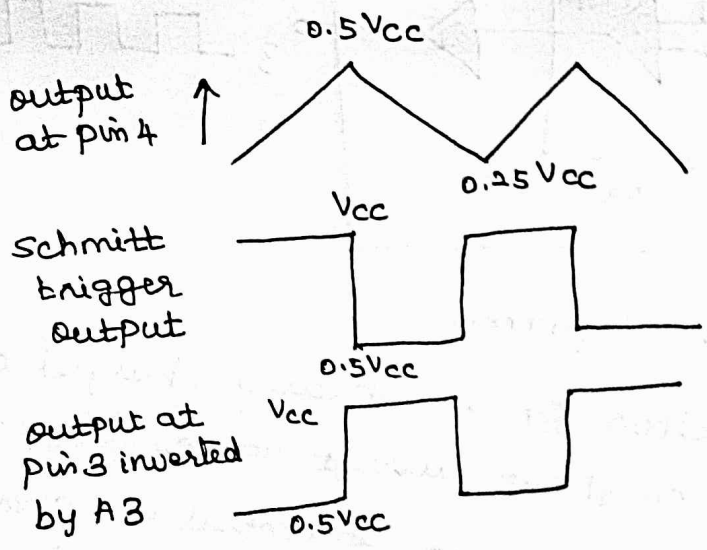 0.5 Vcc
output
at pin 4
0.25 Vcc
Vcc
Schmitt
trigger
output
0.5Vcc
Vcc
output at
pin 3 inverted
by A3
0.5Vcc